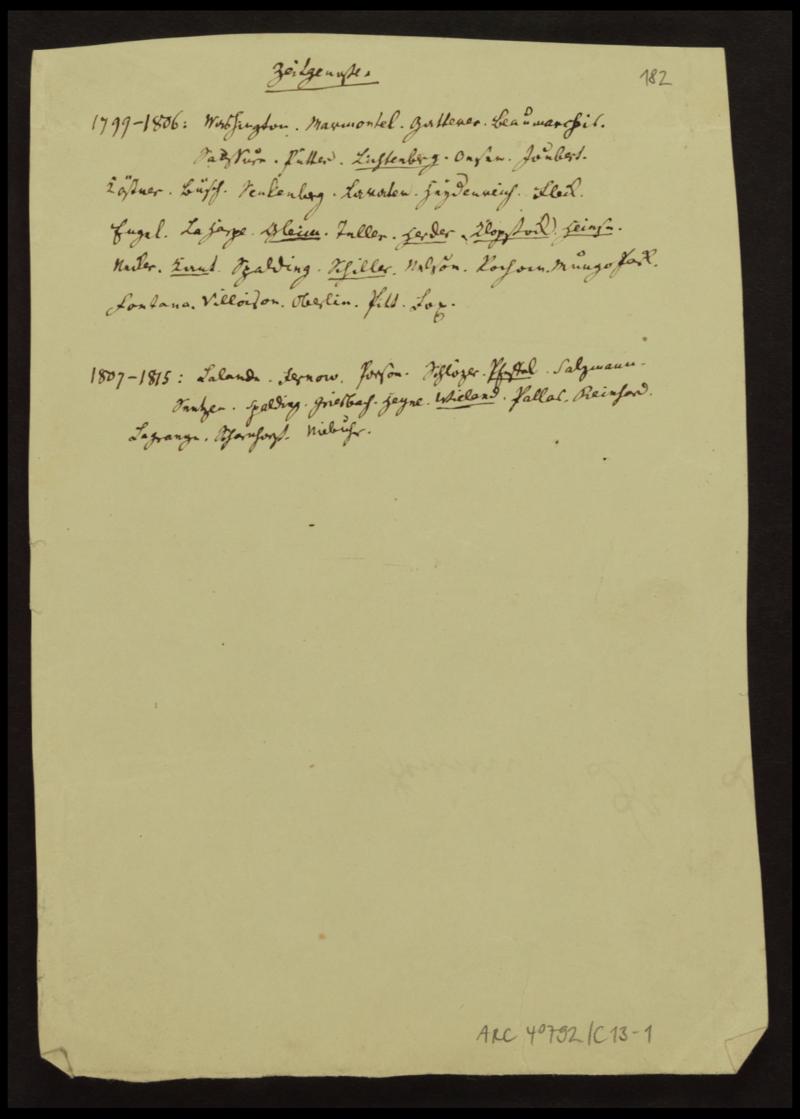 Zeitgenosse.
182
1799-1806: Washington. Marmontel. Gatterer. Beaumarchis.
Saussure. Pütter. Lichtenberg. Joubert.
Kästner. Büsch. Senkenberg. Lavater. Heydenreich. Fleck.
Engel. La Harpe. Gleim. Teller. Herder. Klopstock. Heinse.
Necker. Kant. Spalding. Schiller. Nelson. Rochow. Mungo Park.
Fontana. Villoison. Oberlin. Pitt. Fox.
1807-1815: Lalande. Fernow. Porson. Schlözer. Pfeffel. Salzmann.
Seetzen. Spalding. Griesbach. Heyne. Wieland. Pallas. Reinhard.
Lagrange. Scharnhorst. Niebuhr.
ARC 4°792/C13-1